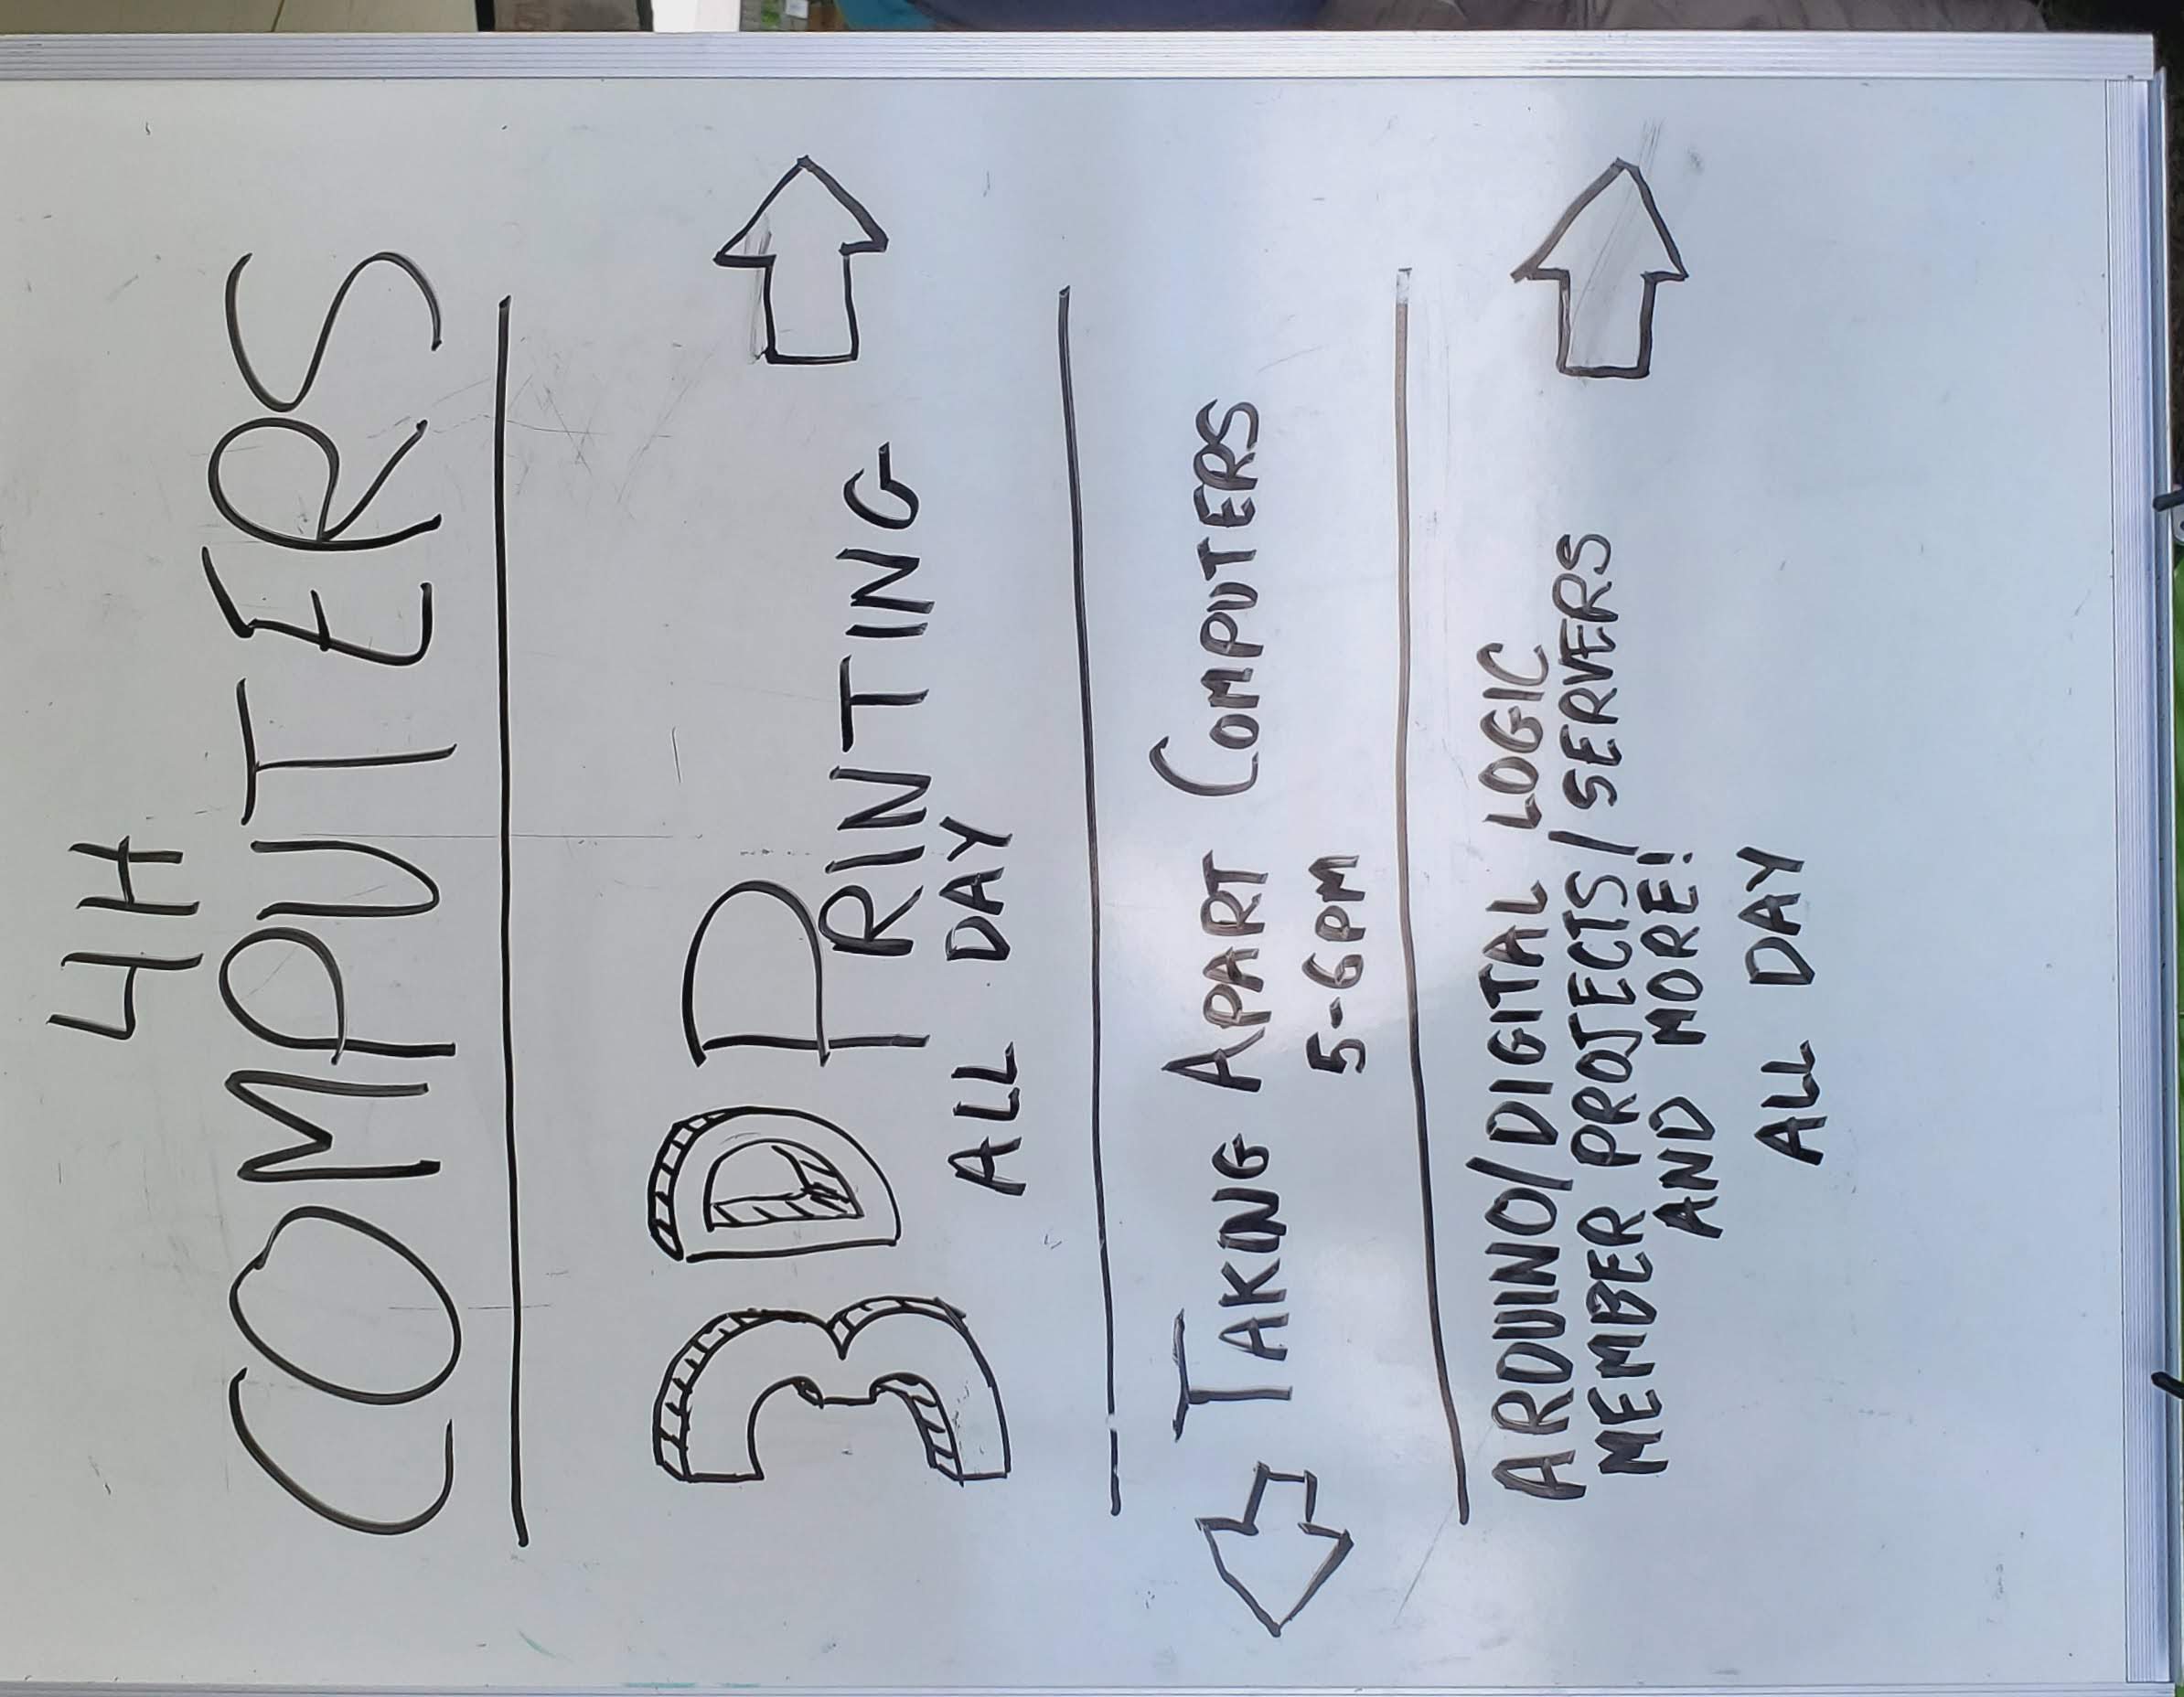 4H
COMPUTERS
3D PRINTING
ALL DAY
TAKING APART COMPUTERS
5-6PM
ARDUINO/DIGITAL LOGIC
MEMBER PROJECTS/SERVERS
AND MORE!
ALL DAY